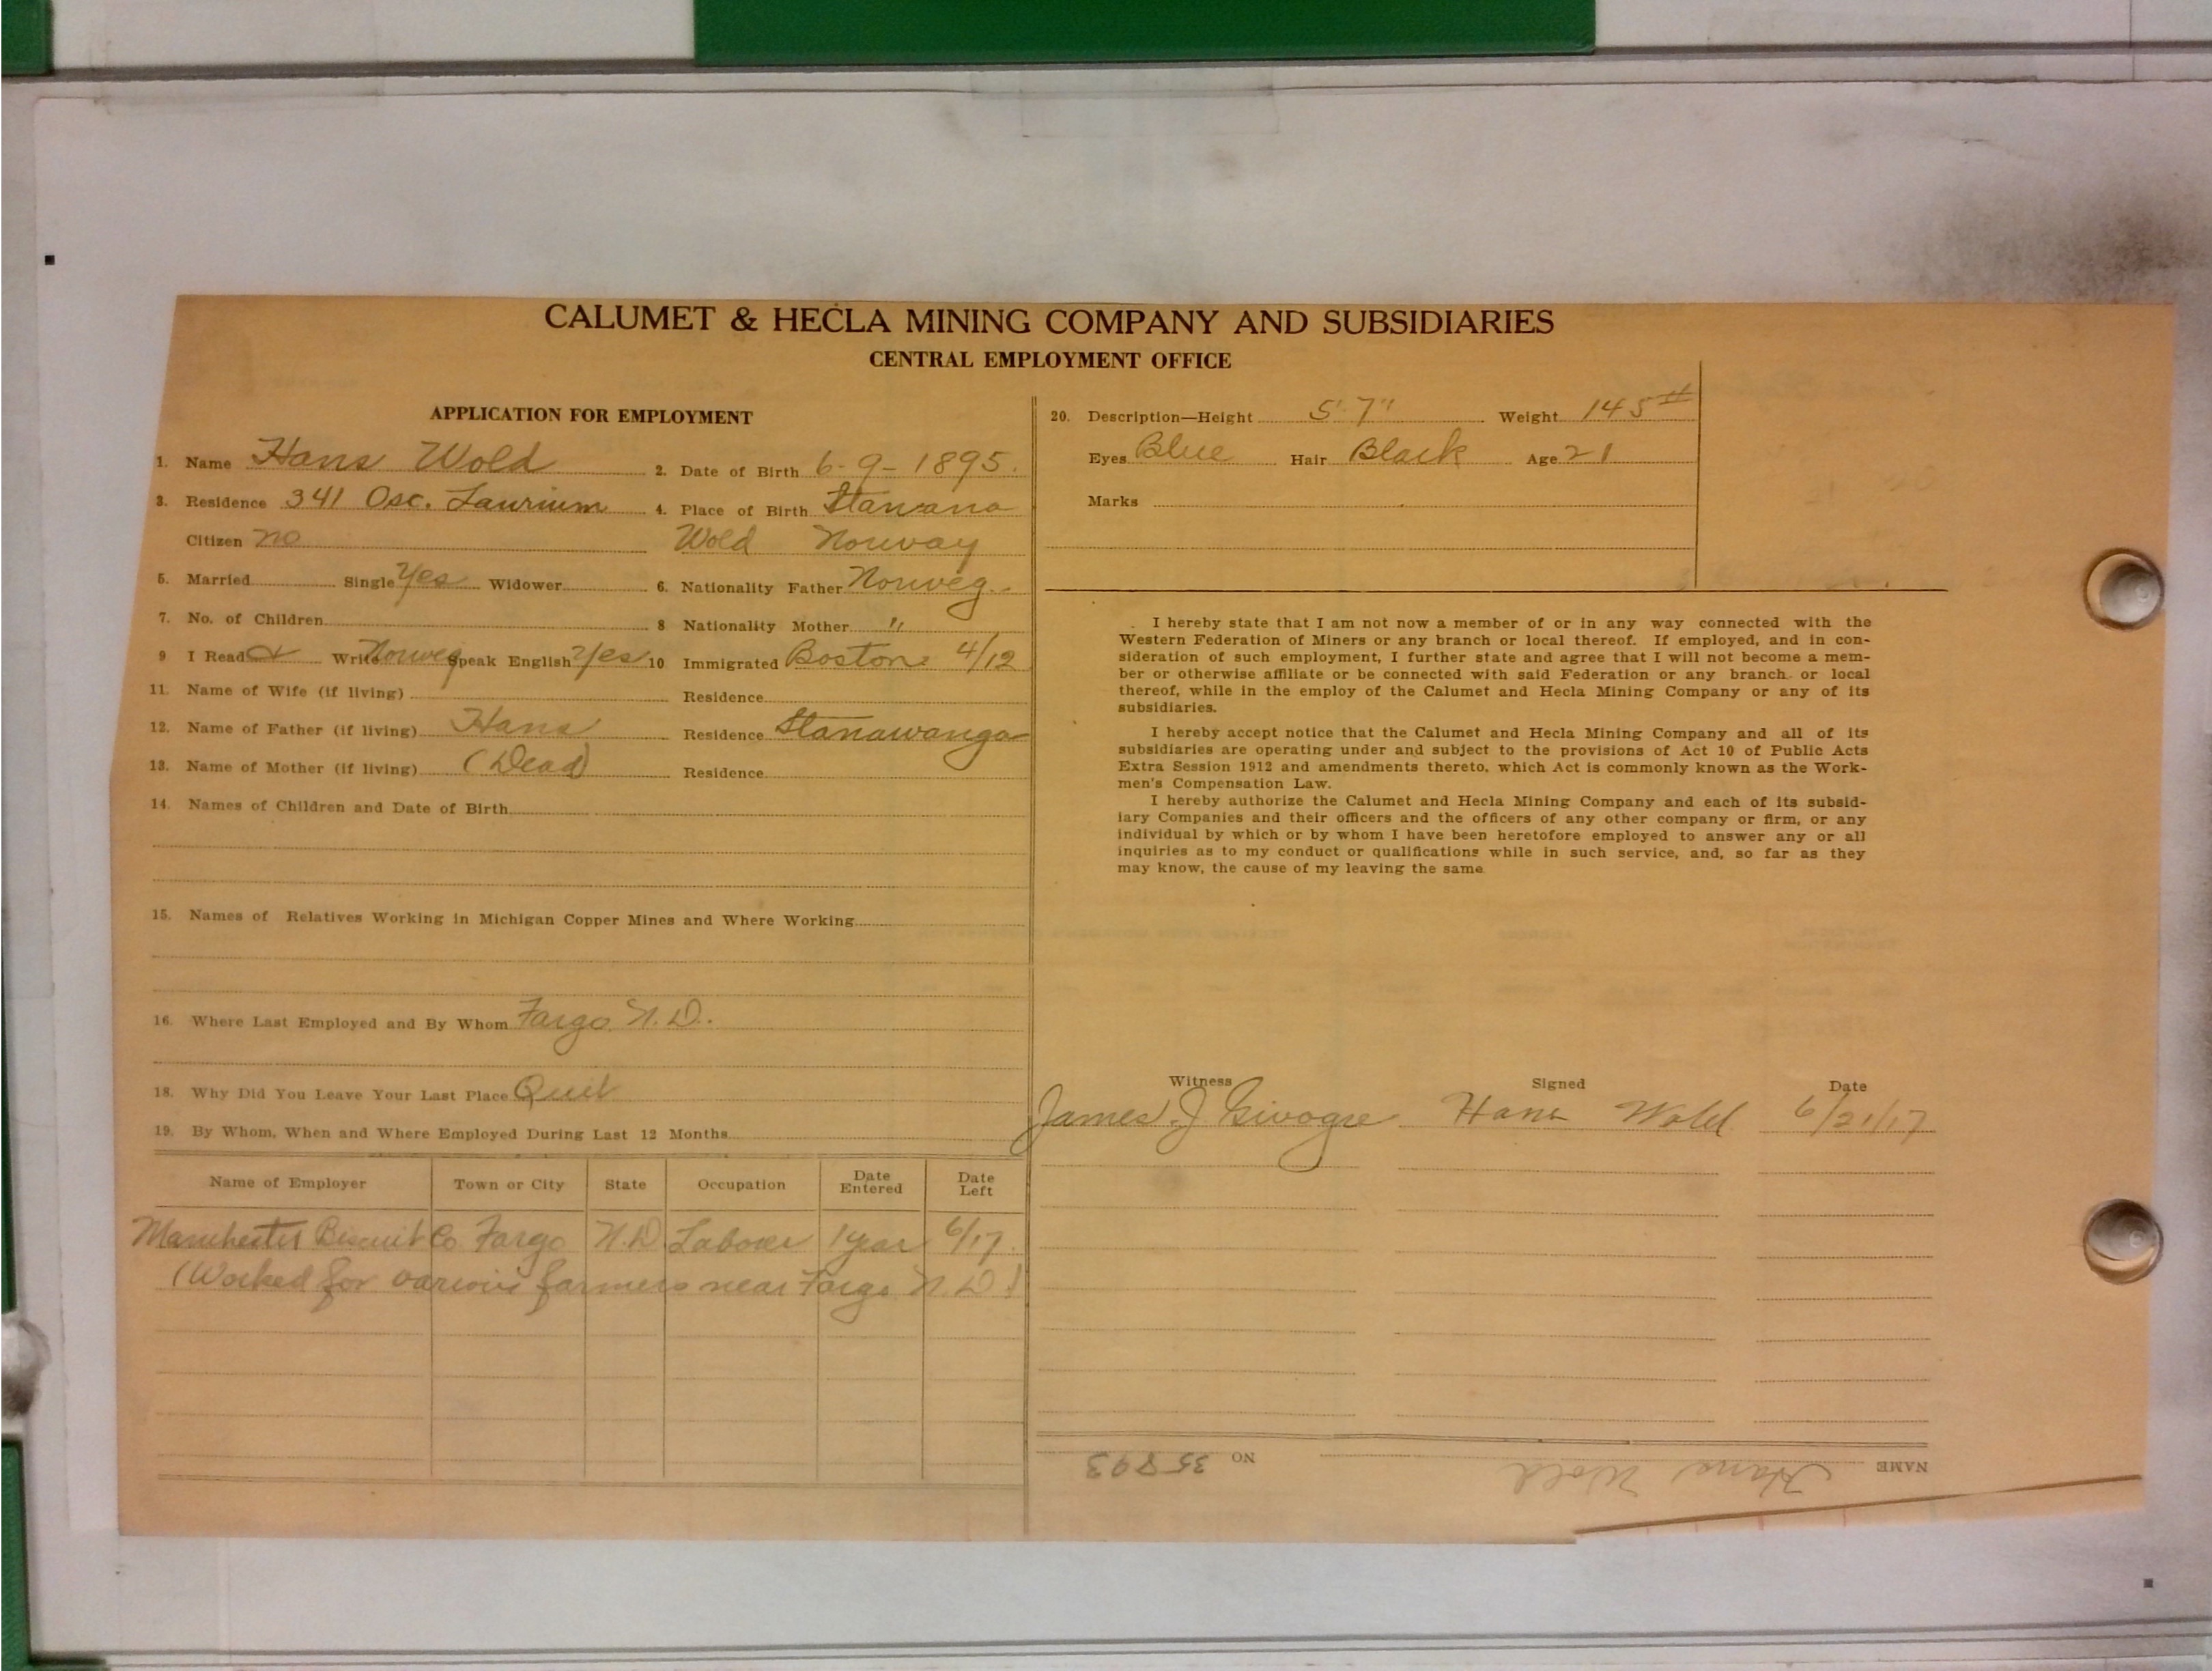 CALUMET & HECLA MINING COMPANY AND SUBSIDIARIES
CENTRAL EMPLOYMENT OFFICE
APPLICATION FOR EMPLOYMENT
1. Name Hans Wold 2. Date of Birth 6-9-1895.
3. Residence 341 Osc. Laurium 4. Place of Birth
Citizen no Wold Norway
5. Married Single Yes Widower 6. Nationality Father Norweg.
7. No. of Children 8 Nationality Mother "
9 I Read & Write Norweg Speak English Yes 10 Immigrated Boston 4/12
11. Name of Wife (if living) Residence
12. Name of Father (if living) Hans Residence Stanawanga
13. Name of Mother (if living) (Dead) Residence
14. Names of Children and Date of Birth
15. Names of Relatives Working in Michigan Copper Mines and Where Working
16. Where Last Employed and By Whom Fargo N.D.
18. Why Did You Leave Your Last Place Quit
19. By Whom, When and Where Employed During Last 12 Months
Name of Employer Town or City State Occupation Date Entered Date Left
Manchester Biscuit Co. Fargo N.D. Laborer 1 year 6/17.
(Worked for various farmers near Fargo N.D.)
20. Description—Height 5' 7" Weight 145#
Eyes Blue Hair Black Age 21
Marks
I hereby state that I am not now a member of or in any way connected with the
Western Federation of Miners or any branch or local thereof. If employed, and in con-
sideration of such employment, I further state and agree that I will not become a mem-
ber or otherwise affiliate or be connected with said Federation or any branch or local
thereof, while in the employ of the Calumet and Hecla Mining Company or any of its
subsidiaries.
I hereby accept notice that the Calumet and Hecla Mining Company and all of its
subsidiaries are operating under and subject to the provisions of Act 10 of Public Acts
Extra Session 1912 and amendments thereto, which Act is commonly known as the Work-
men's Compensation Law.
I hereby authorize the Calumet and Hecla Mining Company and each of its subsid-
iary Companies and their officers and the officers of any other company or firm, or any
individual by which or by whom I have been heretofore employed to answer any or all
inquiries as to my conduct or qualifications while in such service, and, so far as they
may know, the cause of my leaving the same
Witness Signed Date
James J Hans Wold 6/21/17
NAME Hans Wold NO 35893